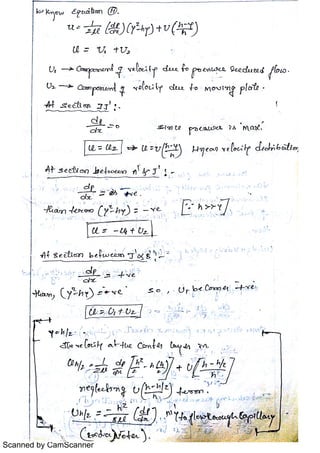 we know Equation (A).
u = 1/2μ (dp/dx) (y²-hy) + U (h-y/h)
u = U₁ + U₂
U₁ → Component of velocity due to pressure induced flow.
U₂ → Component of velocity due to moving plate.
At section JJ' :-
dp/dx = 0 since pressure is 'max'.
u = U₂ ⇒ u = U (h-y/h) linear velocity distribution
At section between A' & J' :-
dp/dx = -ve.
than term (y²-hy) = -ve [∵ h>>y]
u = -U₁ + U₂
At section between J' & B' :-
dp/dx = +ve
than, (y²-hy) = +ve so, U₁ becomes +ve.
u = U₁ + U₂
y = h/2
The velocity at the Center layer is
U h/2 = 1/2μ dp/dx [h²/2 - h(h/2)] + U [h - h/2 / h]
neglecting U (h-h/2 / h) term.
U h/2 = - h²/8μ (dp/dx). flow through Capillary
Scanned by CamScanner